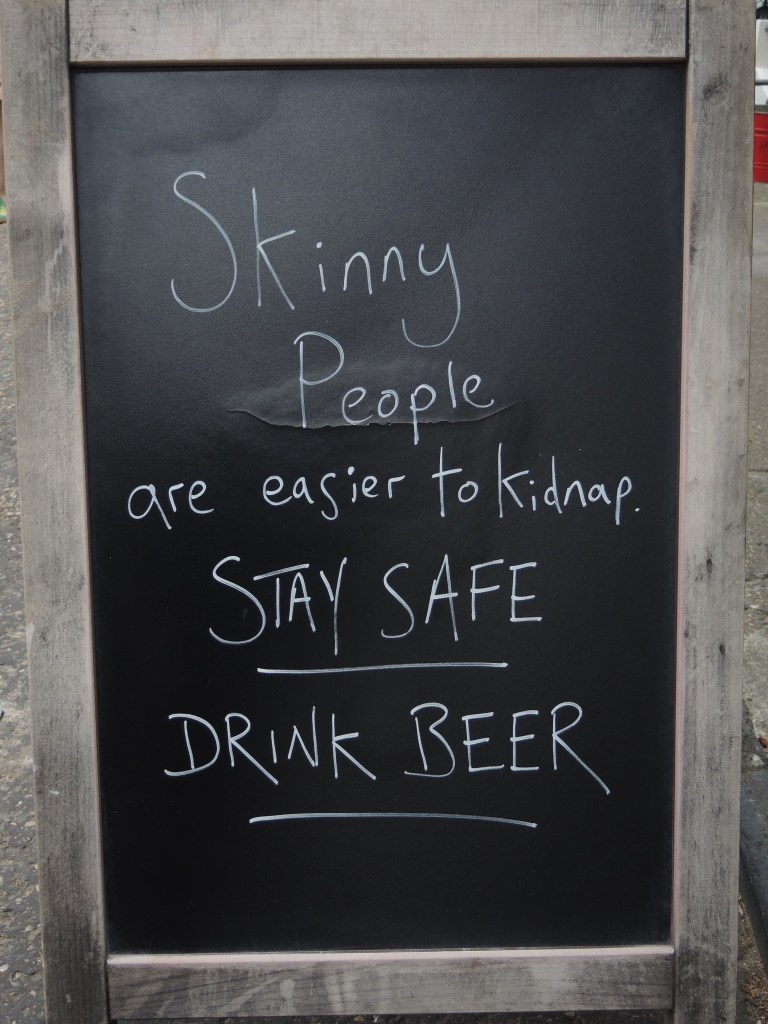 Skinny
People
are easier to kidnap.
STAY SAFE
DRINK BEER